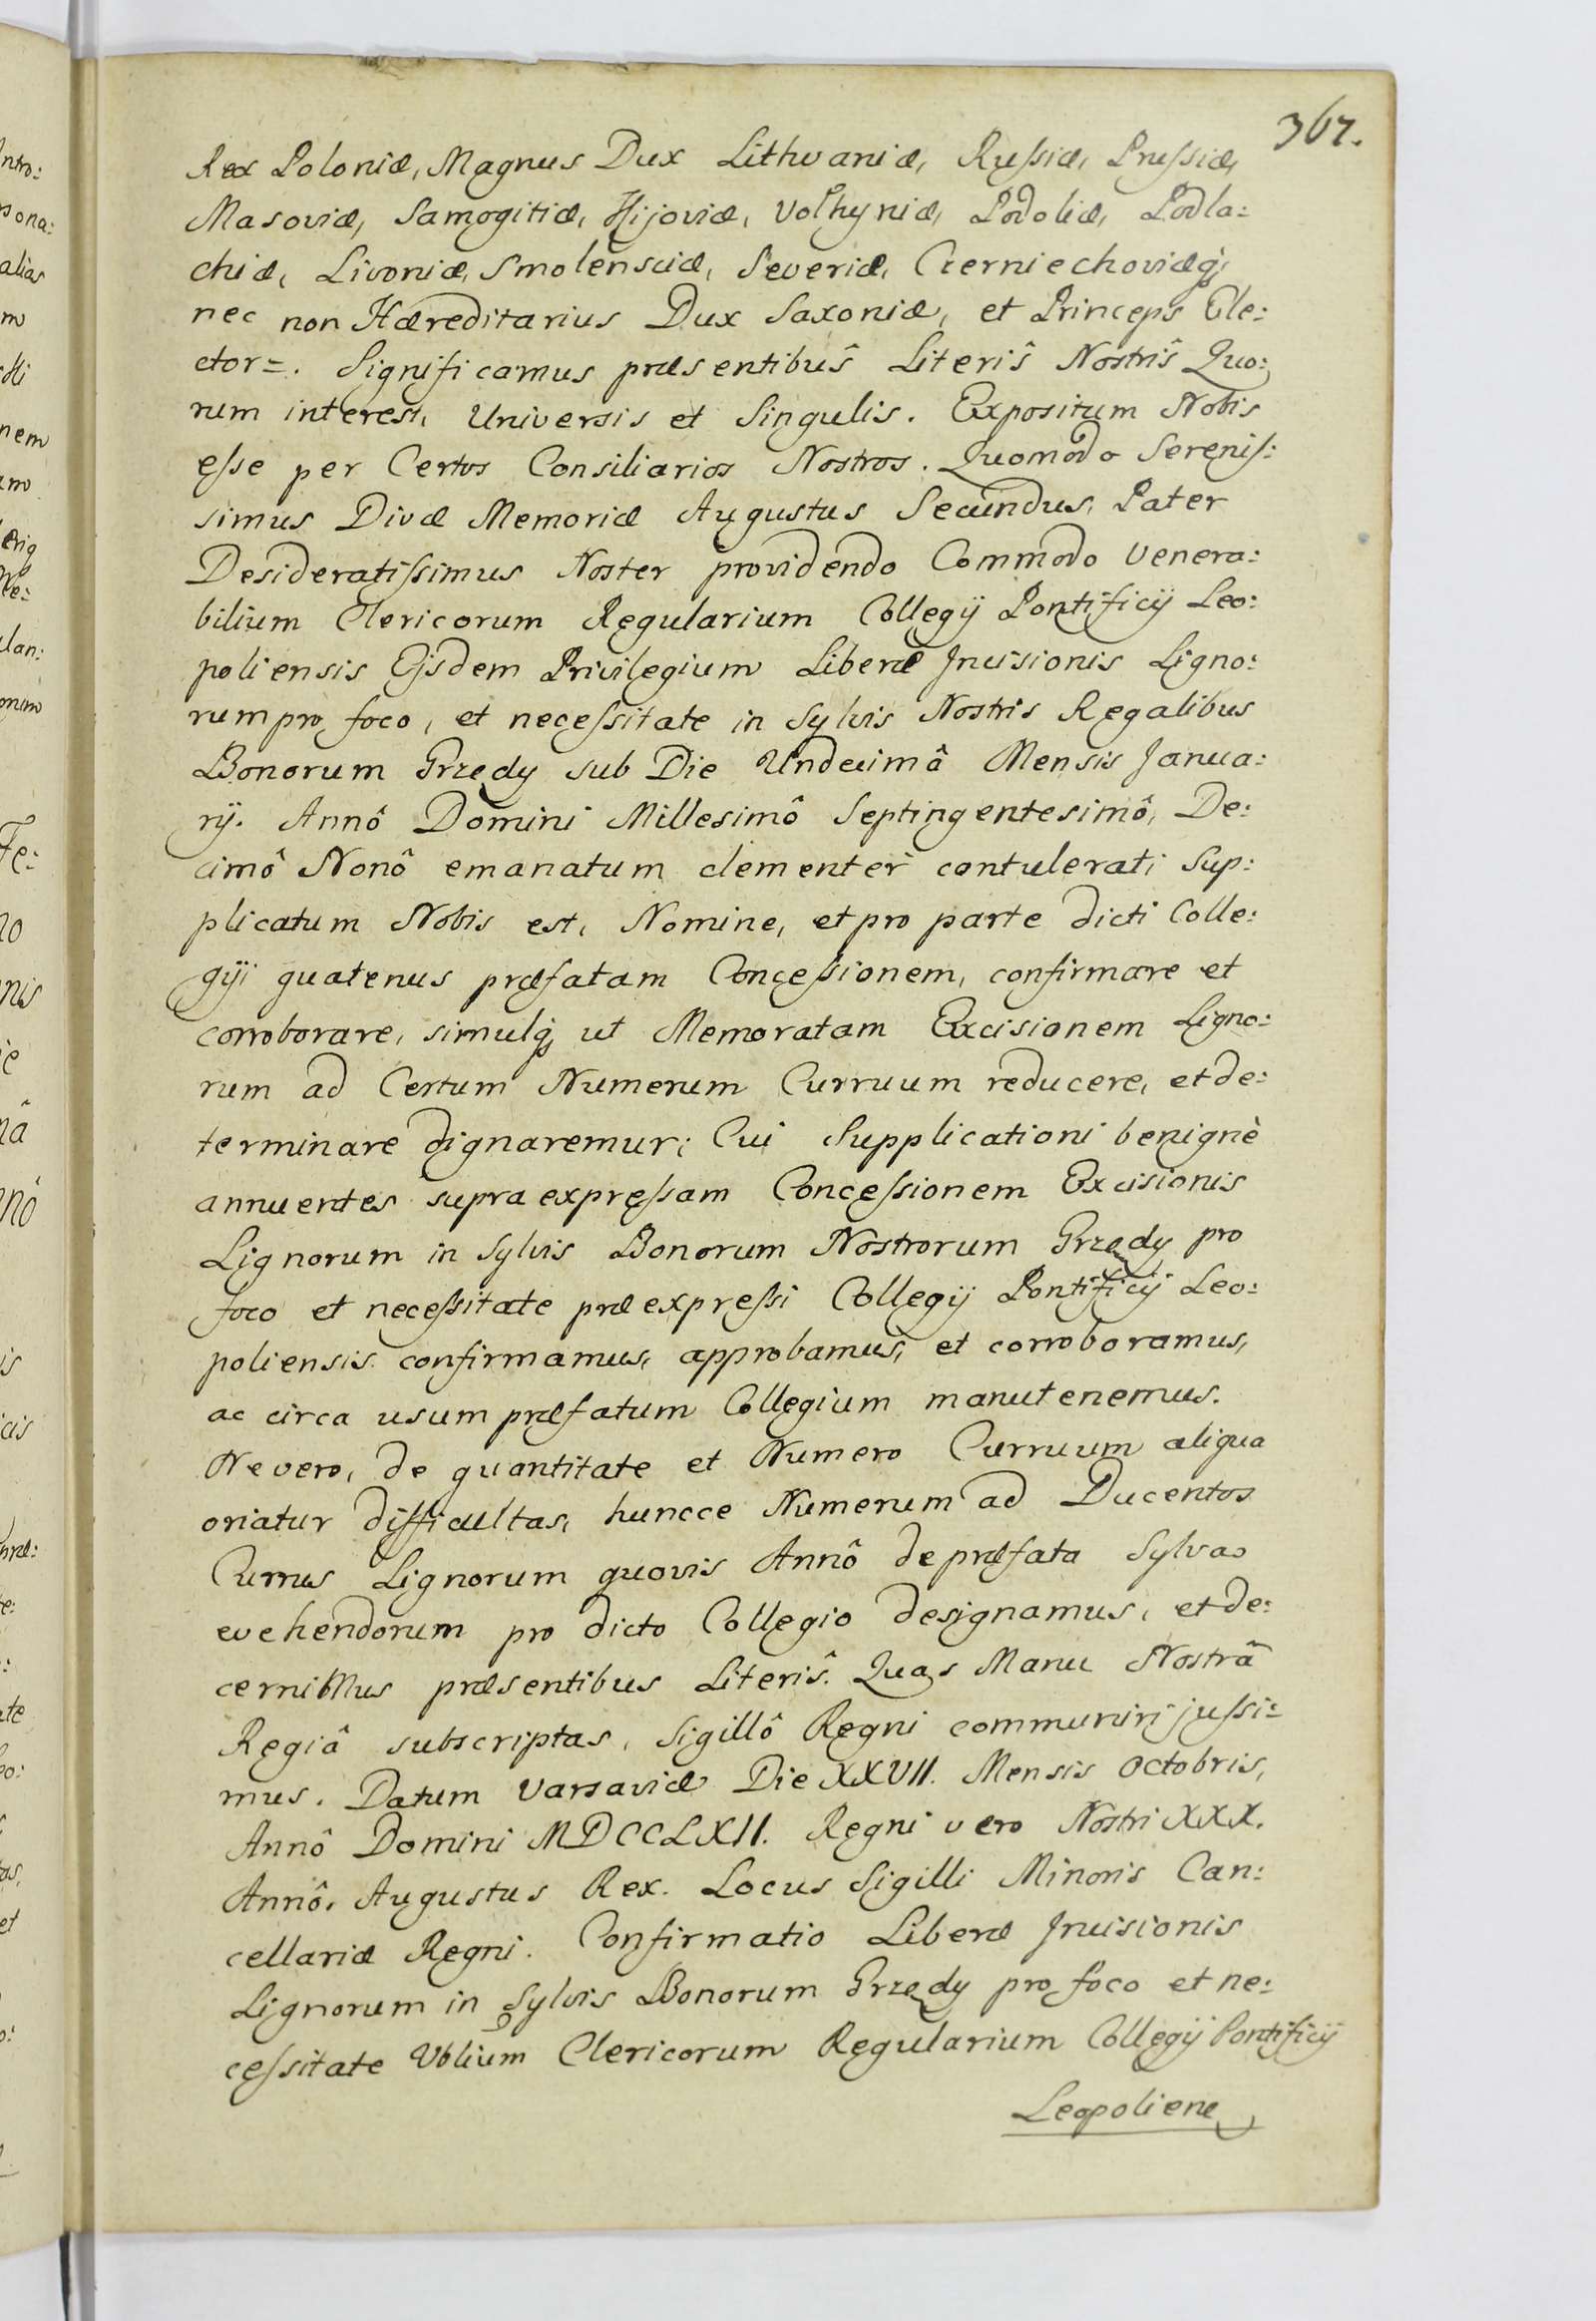 367.
Rex Poloniæ, Magnus Dux Lithvaniæ, Rußiæ, Prußiæ,
Masoviæ, Samogitiæ, Kijoviæ, Volhyniæ, Podoliæ, Podla:
chiæ, Livoniæ, Smolensciæ, Severiæ, Czerniechoviæq;
nec non Hæreditarius Dux Saxoniæ, et Princeps Ele:
ctor=. Significamus præsentibûs Literîs Nostrîs Quo:
rum interest, Universis et Singulis. Expositum Nobis
eſse per Certos Consiliarios Nostros. Quomodo Sereniſ:
simus Divæ Memoriæ Augustus Secundus, Pater
Desideratiſsimus Noster providendo Commodo Venera:
bilium Clericorum Regularium Collegij Pontificij Leo:
poliensis Ejsdem Privilegium Liberæ Incisionis Ligno:
rum pro foco, et neceſsitate in Sylvis Nostris Regalibus
Bonorum Grzędy sub Die Undecimâ Mensis Janua:
rij. Annô Domini Millesimô Septingentesimô, De:
cimô Nonô emanatum clementer contulerat; Sup:
plicatum Nobis est, Nomine, et pro parte dicti Colle:
gij; quatenus præfatam Conceſsionem, confirmare et
corroborare, simulq; ut Memoratam Excisionem Ligno:
rum ad Certum Numerum Curruum reducere, et de:
terminare dignaremur; Cui Supplicationi benignè
annuentes supra expreſsam Conceſsionem Excisionis
Lignorum in Sylvis Bonorum Nostrorum Grzędy pro
foco et neceſsitate præexpreſsi Collegij Pontificij Leo:
poliensis confirmamus, approbamus, et corroboramus,
ac circa usum præfatum Collegium manutenemus.
Ne vero, de quantitate et Numero Curruum aliqua
oriatur difficultas, huncce Numerum ad Ducentos
Currus Lignorum quovis Annô de præfata Sylva
evehendorum pro dicto Collegio designamus, et de:
cernimus præsentibus Literîs. Quas Manu Nostrâ
Regiâ subscriptas, Sigillô Regni communiri juſsi:
mus. Datum Varsaviæ Die XXVII. Mensis Octobris,
Annô Domini MDCCLXII. Regni vero Nostri XXX.
Annô. Augustus Rex. Locus Sigilli Minoris Can:
cellariæ Regni. Confirmatio Liberæ Incisionis
Lignorum in Sylvis Bonorum Grzędy pro foco et ne:
ceſsitate Vblium Clericorum Regularium Collegij Pontificij
Leopoliene